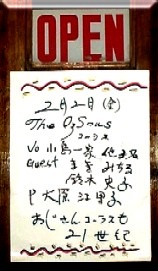 OPEN
2月2日(金)
The O3Snus
コーラス
Vo 小島一家 他
Guest まき みちる
鈴木 史子
P 大原 江里子
おじさんコーラスも
21世紀